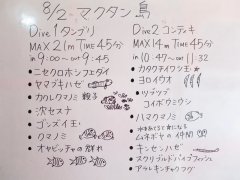 8/2 マクタン島
Dive1 タンブリ
MAX 21m TIME 45分
in 9:00 → out 9:45
・ニセクロホシフエダイ
・ヤマブキハゼ
・カクレクマノミ 親子
・ゴンズイ玉
・クマノミ
・オヤビッチャの群れ
Dive2 コンテキ
MAX 14m TIME 45分
in 10:47 → out 11:32
・カタクチイワシ
・ヨロイウオ
・ツブツブ
コイボウミウシ
・ハマクマノミ
ムネボヤの仲間
・キンセンハゼ
・スクリブルドパイプフィッシュ
・アラレキンチャクフグ